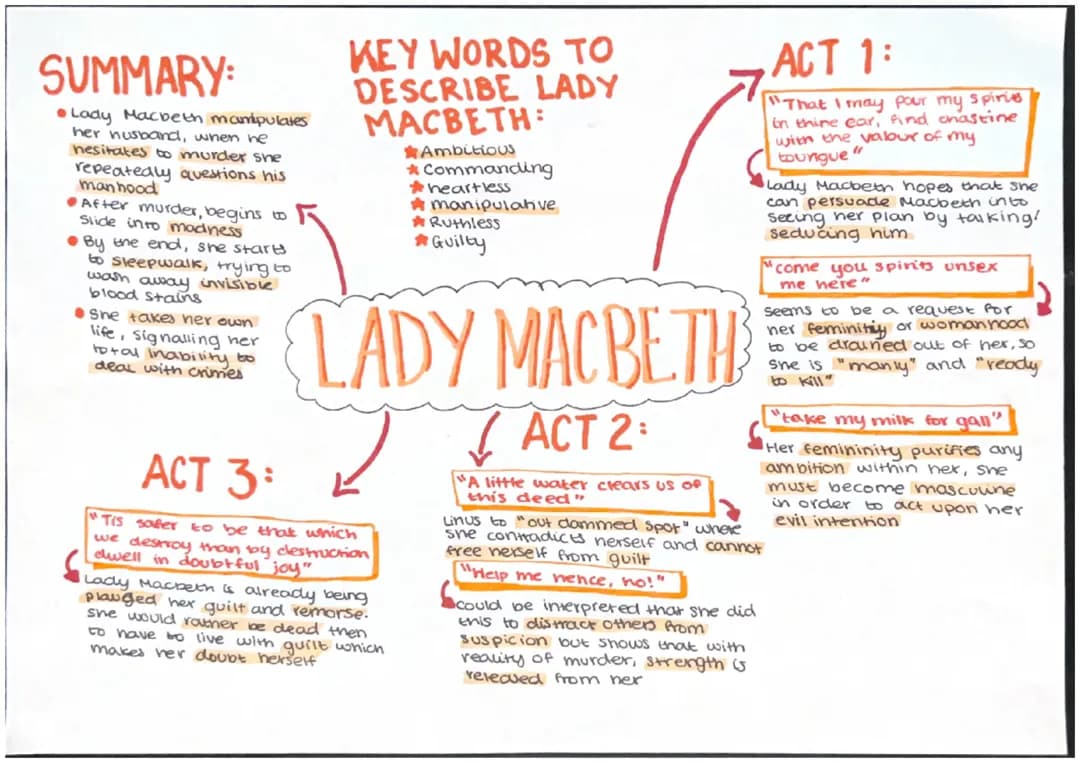 SUMMARY:
Lady Macbeth manipulates
her husband, when he
hesitates to murder she
repeatedly questions his
manhood
After murder, begins to
slide into madness
By the end, she starts
to sleepwalk, trying to
wash away invisible
blood stains
She takes her own
life, signalling her
total inability to
deal with crimes
KEY WORDS TO
DESCRIBE LADY
MACBETH:
Ambitious
Commanding
heartless
manipulative
Ruthless
Guilty
LADY MACBETH
ACT 1:
"That I may pour my spirits
in thine ear, find chastine
with the valour of my
toungue"
Lady Macbeth hopes that she
can persuade Macbeth into
seeing her plan by talking/
seducing him
"come you spirits unsex
me here"
seems to be a request for
her femininity or womanhood
to be drained out of her, so
she is "manly" and "ready
to kill"
"take my milk for gall"
Her femininity purifies any
ambition within her, she
must become masculine
in order to act upon her
evil intention
ACT 2:
"A little water clears us of
this deed"
Links to "out dammed spot" where
she contradicts herself and cannot
free herself from guilt
"Help me hence, ho!"
could be interpreted that she did
this to distract others from
suspicion but shows that with
reality of murder, strength is
released from her
ACT 3:
"Tis safer to be that which
we destroy than by destruction
dwell in doubtful joy"
Lady Macbeth is already being
plauged her guilt and remorse.
she would rather be dead then
to have to live with guilt which
makes her doubt herself